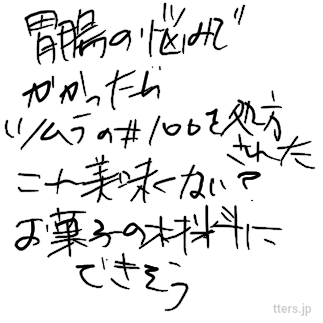 胃腸の悩みで
かかったら
ツムラの#100を処方
された
これ美味くない?
お菓子の材料に
できそう
tters.jp